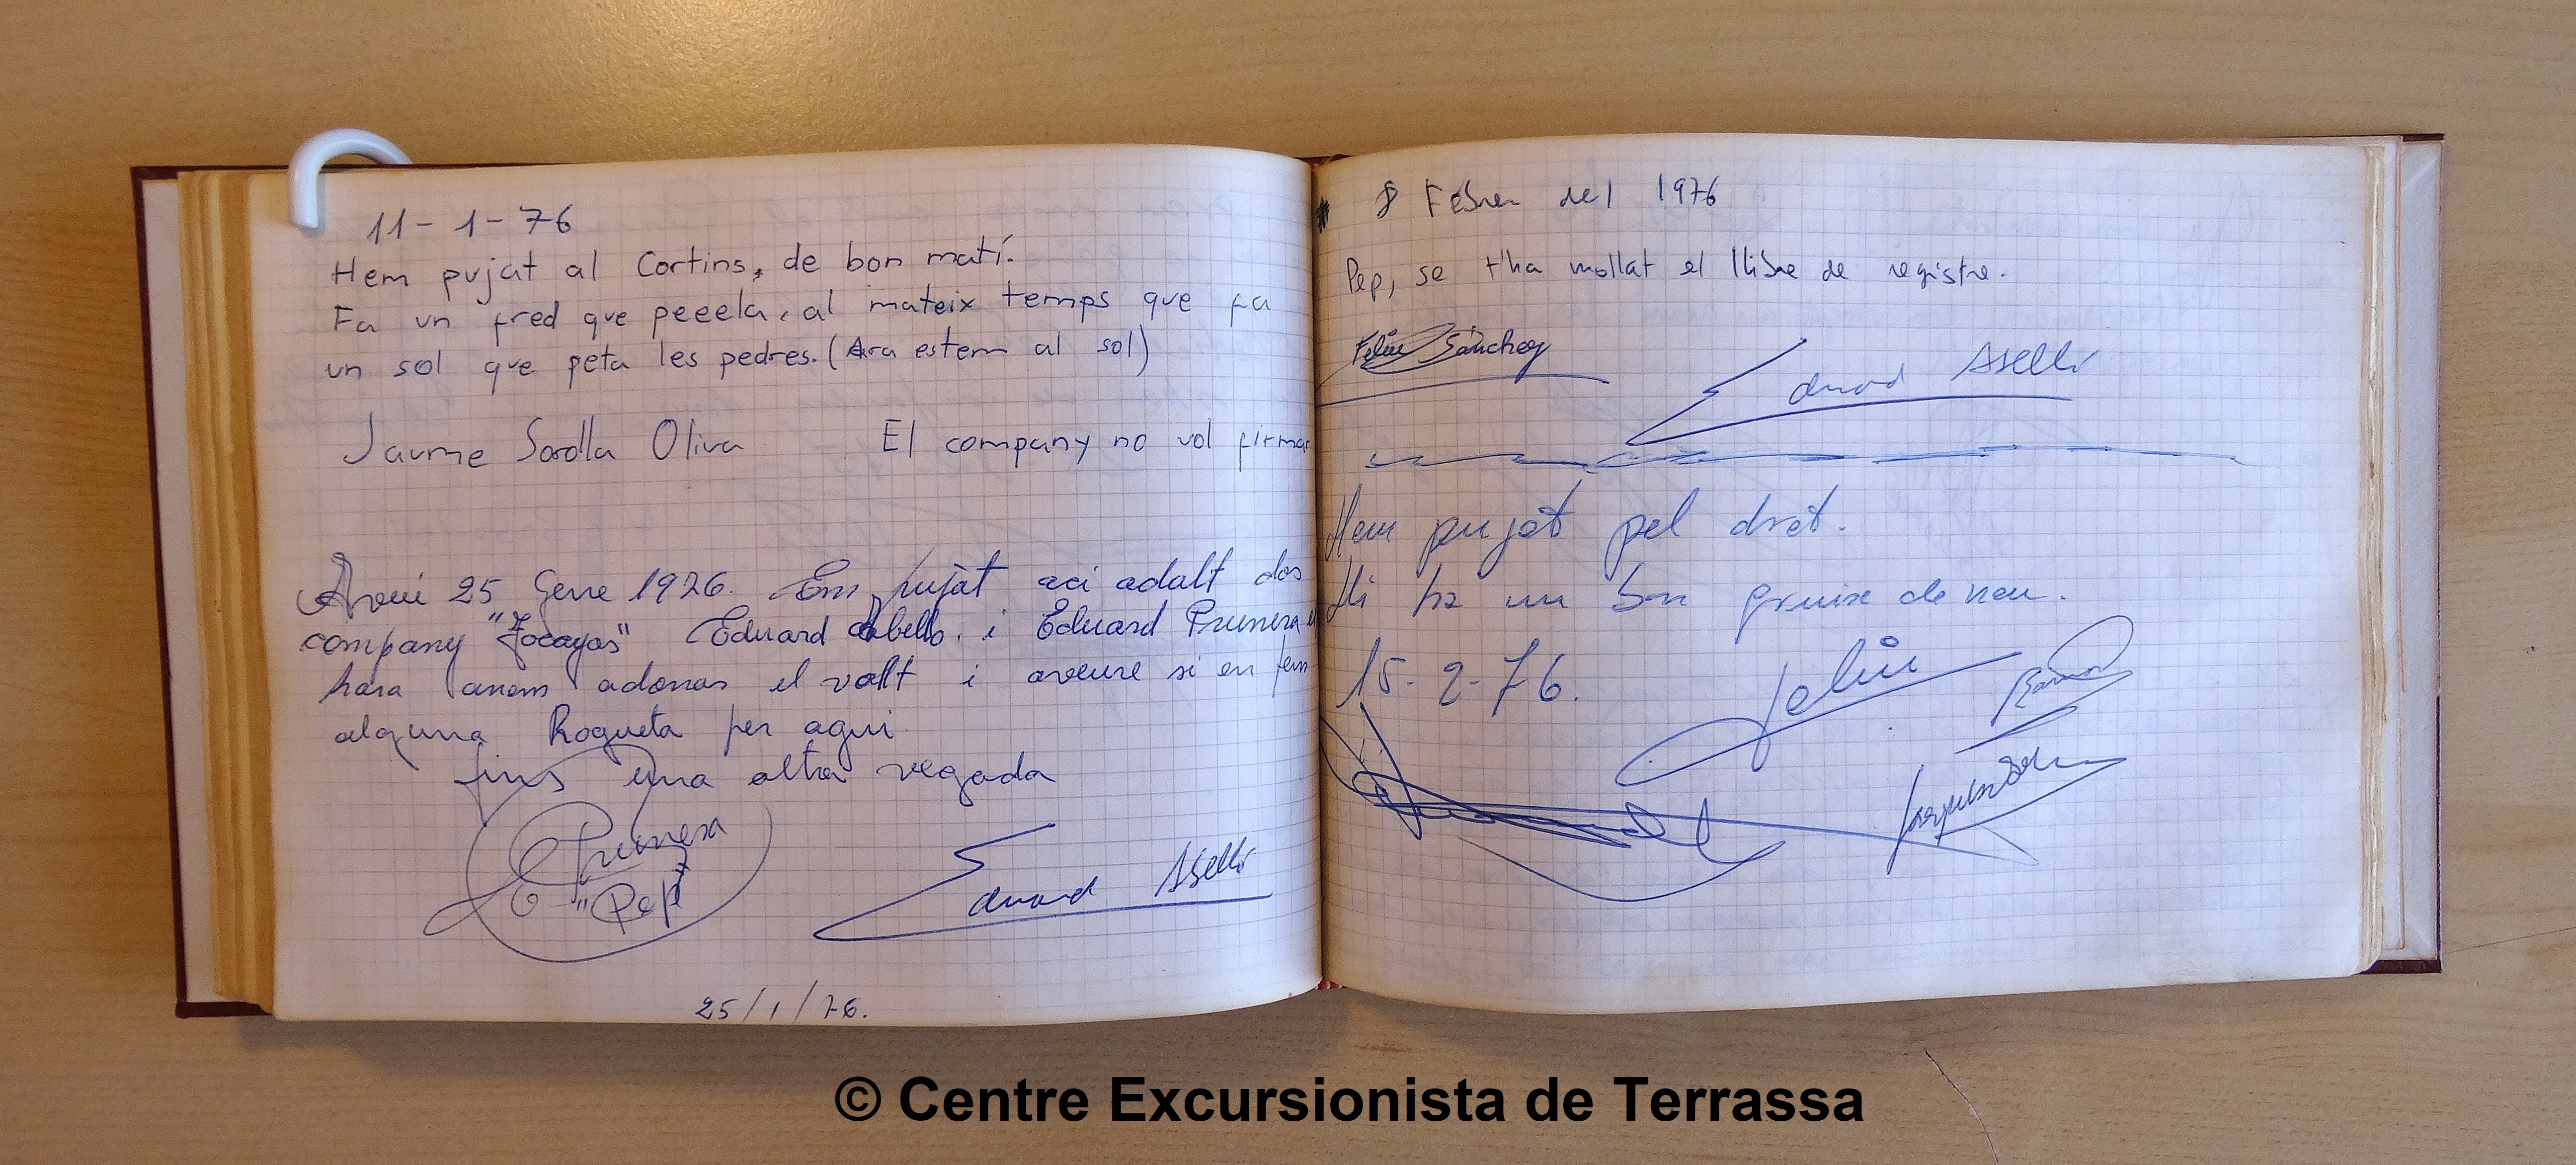 11-1-76
Hem pujat al Cortins, de bon matí.
Fa un fred que peeela, al mateix temps que fa
un sol que peta les pedres. (Ara estem al sol)
Jaume Sorolla Oliva El company no vol firmar
Avui 25 Gene 1976. Em pujàt aci adalt dos
company "Tocayos" Eduard Abello. i Eduard Prunera
hara anem adonar el vallt i aveure si en fem
alguna Roqueta per aqui
fins una altra vegada
E Prunera
"Pep"
Eduard Abelló
25/1/76.
8 Febrer del 1976
Pep, se t'ha mollat el llibre de registre.
Feliu Sánchez
Eduard Abelló
Hem pujat pel dret.
Hi ha un bon gruix de neu.
15-2-76.
Feliu
Ramon
© Centre Excursionista de Terrassa